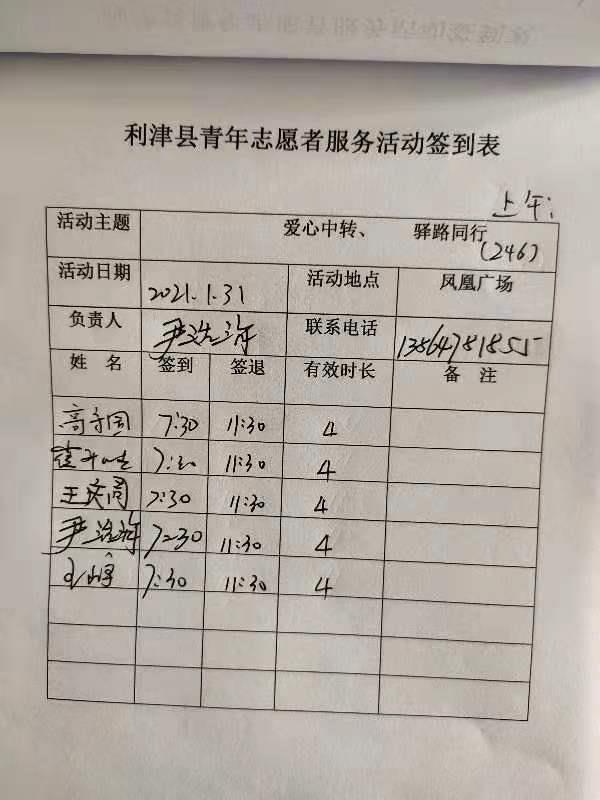 利津县青年志愿者服务活动签到表
上午:
活动主题 爱心中转、 驿路同行
(246)
活动日期 2021.1.31 活动地点 凤凰广场
负责人 尹 联系电话 13864781855
姓 名 签到 签退 有效时长 备 注
高守国 7:30 11:30 4
7:30 11:30 4
王 7:30 11:30 4
尹 7:30 11:30 4
王峰 7:30 11:30 4